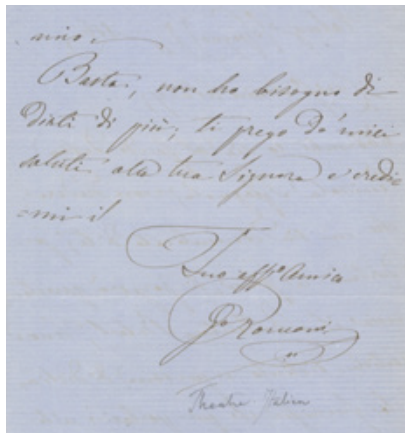 mio.
Basta, non ho bisogno di
dirti di più; ti prego de' miei
saluti alla tua Signora e credi
mi il
Tuo aff.o Amico
Ronconi
Theatre Italien